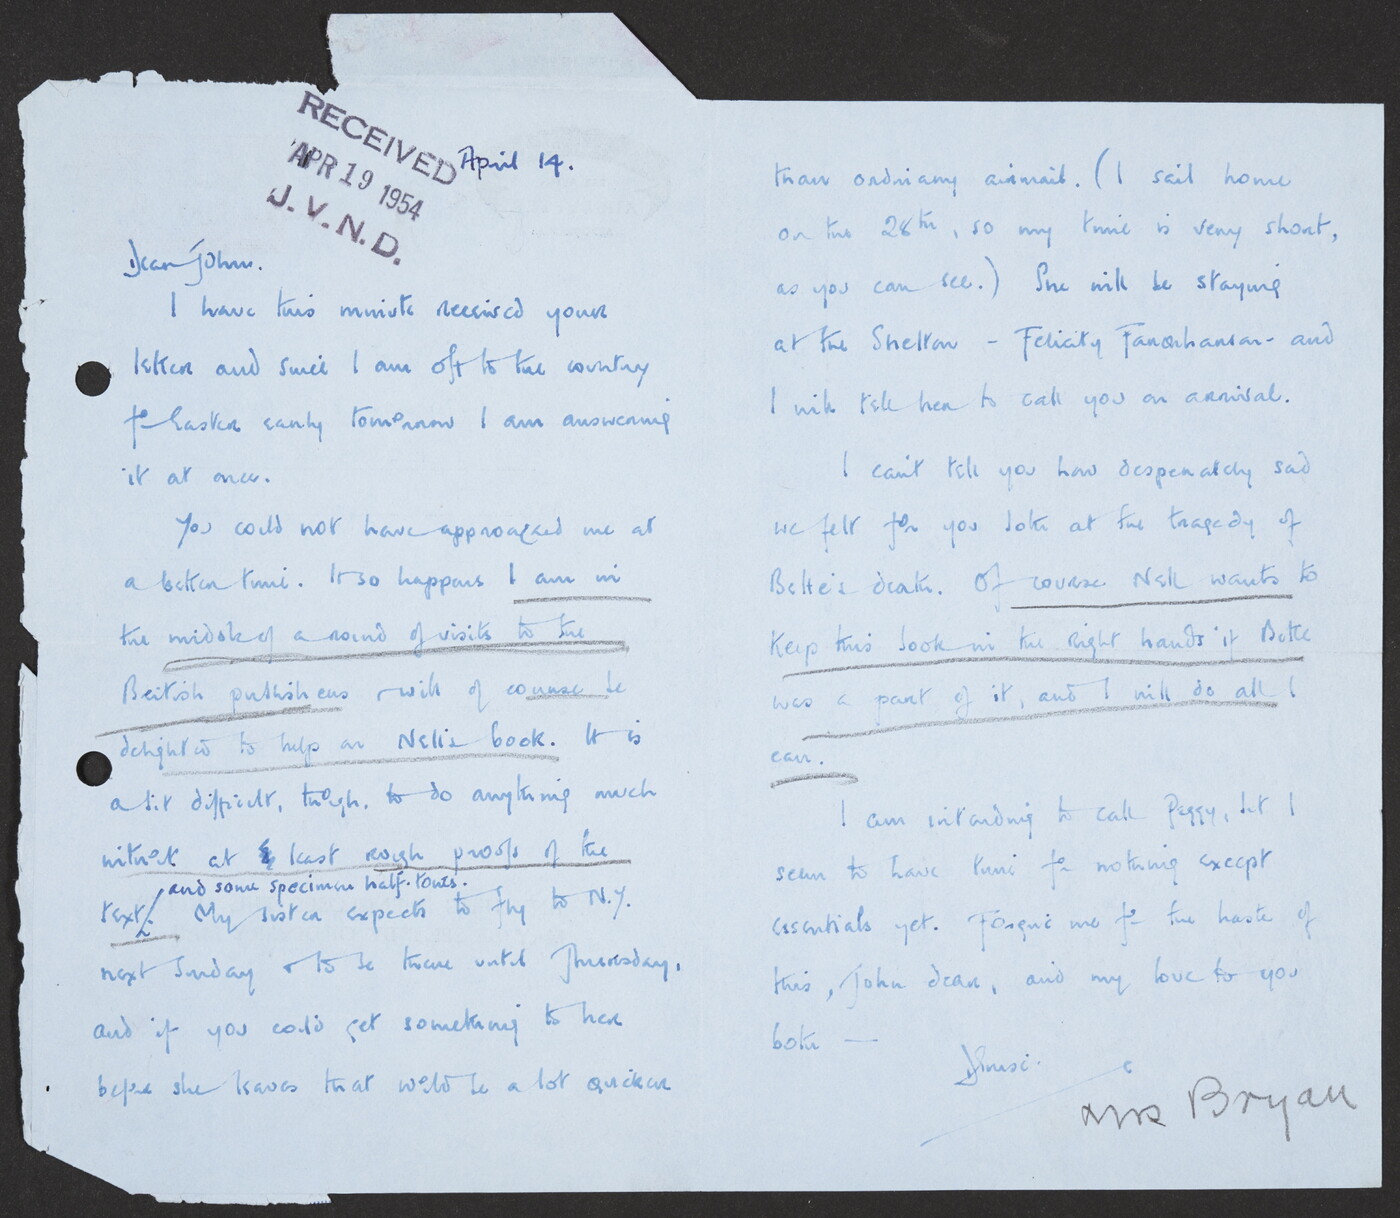 RECEIVED
APR 19 1954
J. V. N. D.
April 14.
Dear John.
I have this minute received your
letter and since I am off to the country
for Easter early tomorrow I am answering
it at once.
You could not have approached me at
a better time. It so happens I am in
the midst of a round of visits to the
British publishers & will of course be
delighted to help on Nell's book. It is
a bit difficult, though, to do anything much
without at least rough proofs of the
and some specimen half-tones.
text. My sister expects to fly to N.Y.
next Sunday & to be there until Thursday,
and if you could get something to her
before she leaves that would be a lot quicker
than ordinary airmail. (I sail home
on the 28th, so my time is very short,
as you can see.) She will be staying
at the Shelton - Felicity - and
I will tell her to call you on arrival.
I can't tell you how desperately sad
we felt for you both at the tragedy of
Bette's death. Of course Nell wants to
keep this book in the right hands if Bette
was a part of it, and I will do all I
can.
I am intending to call Peggy, but I
seem to have time for nothing except
essentials yet. Forgive me for the haste of
this, John dear, and my love to you
both —
Mrs Bryan